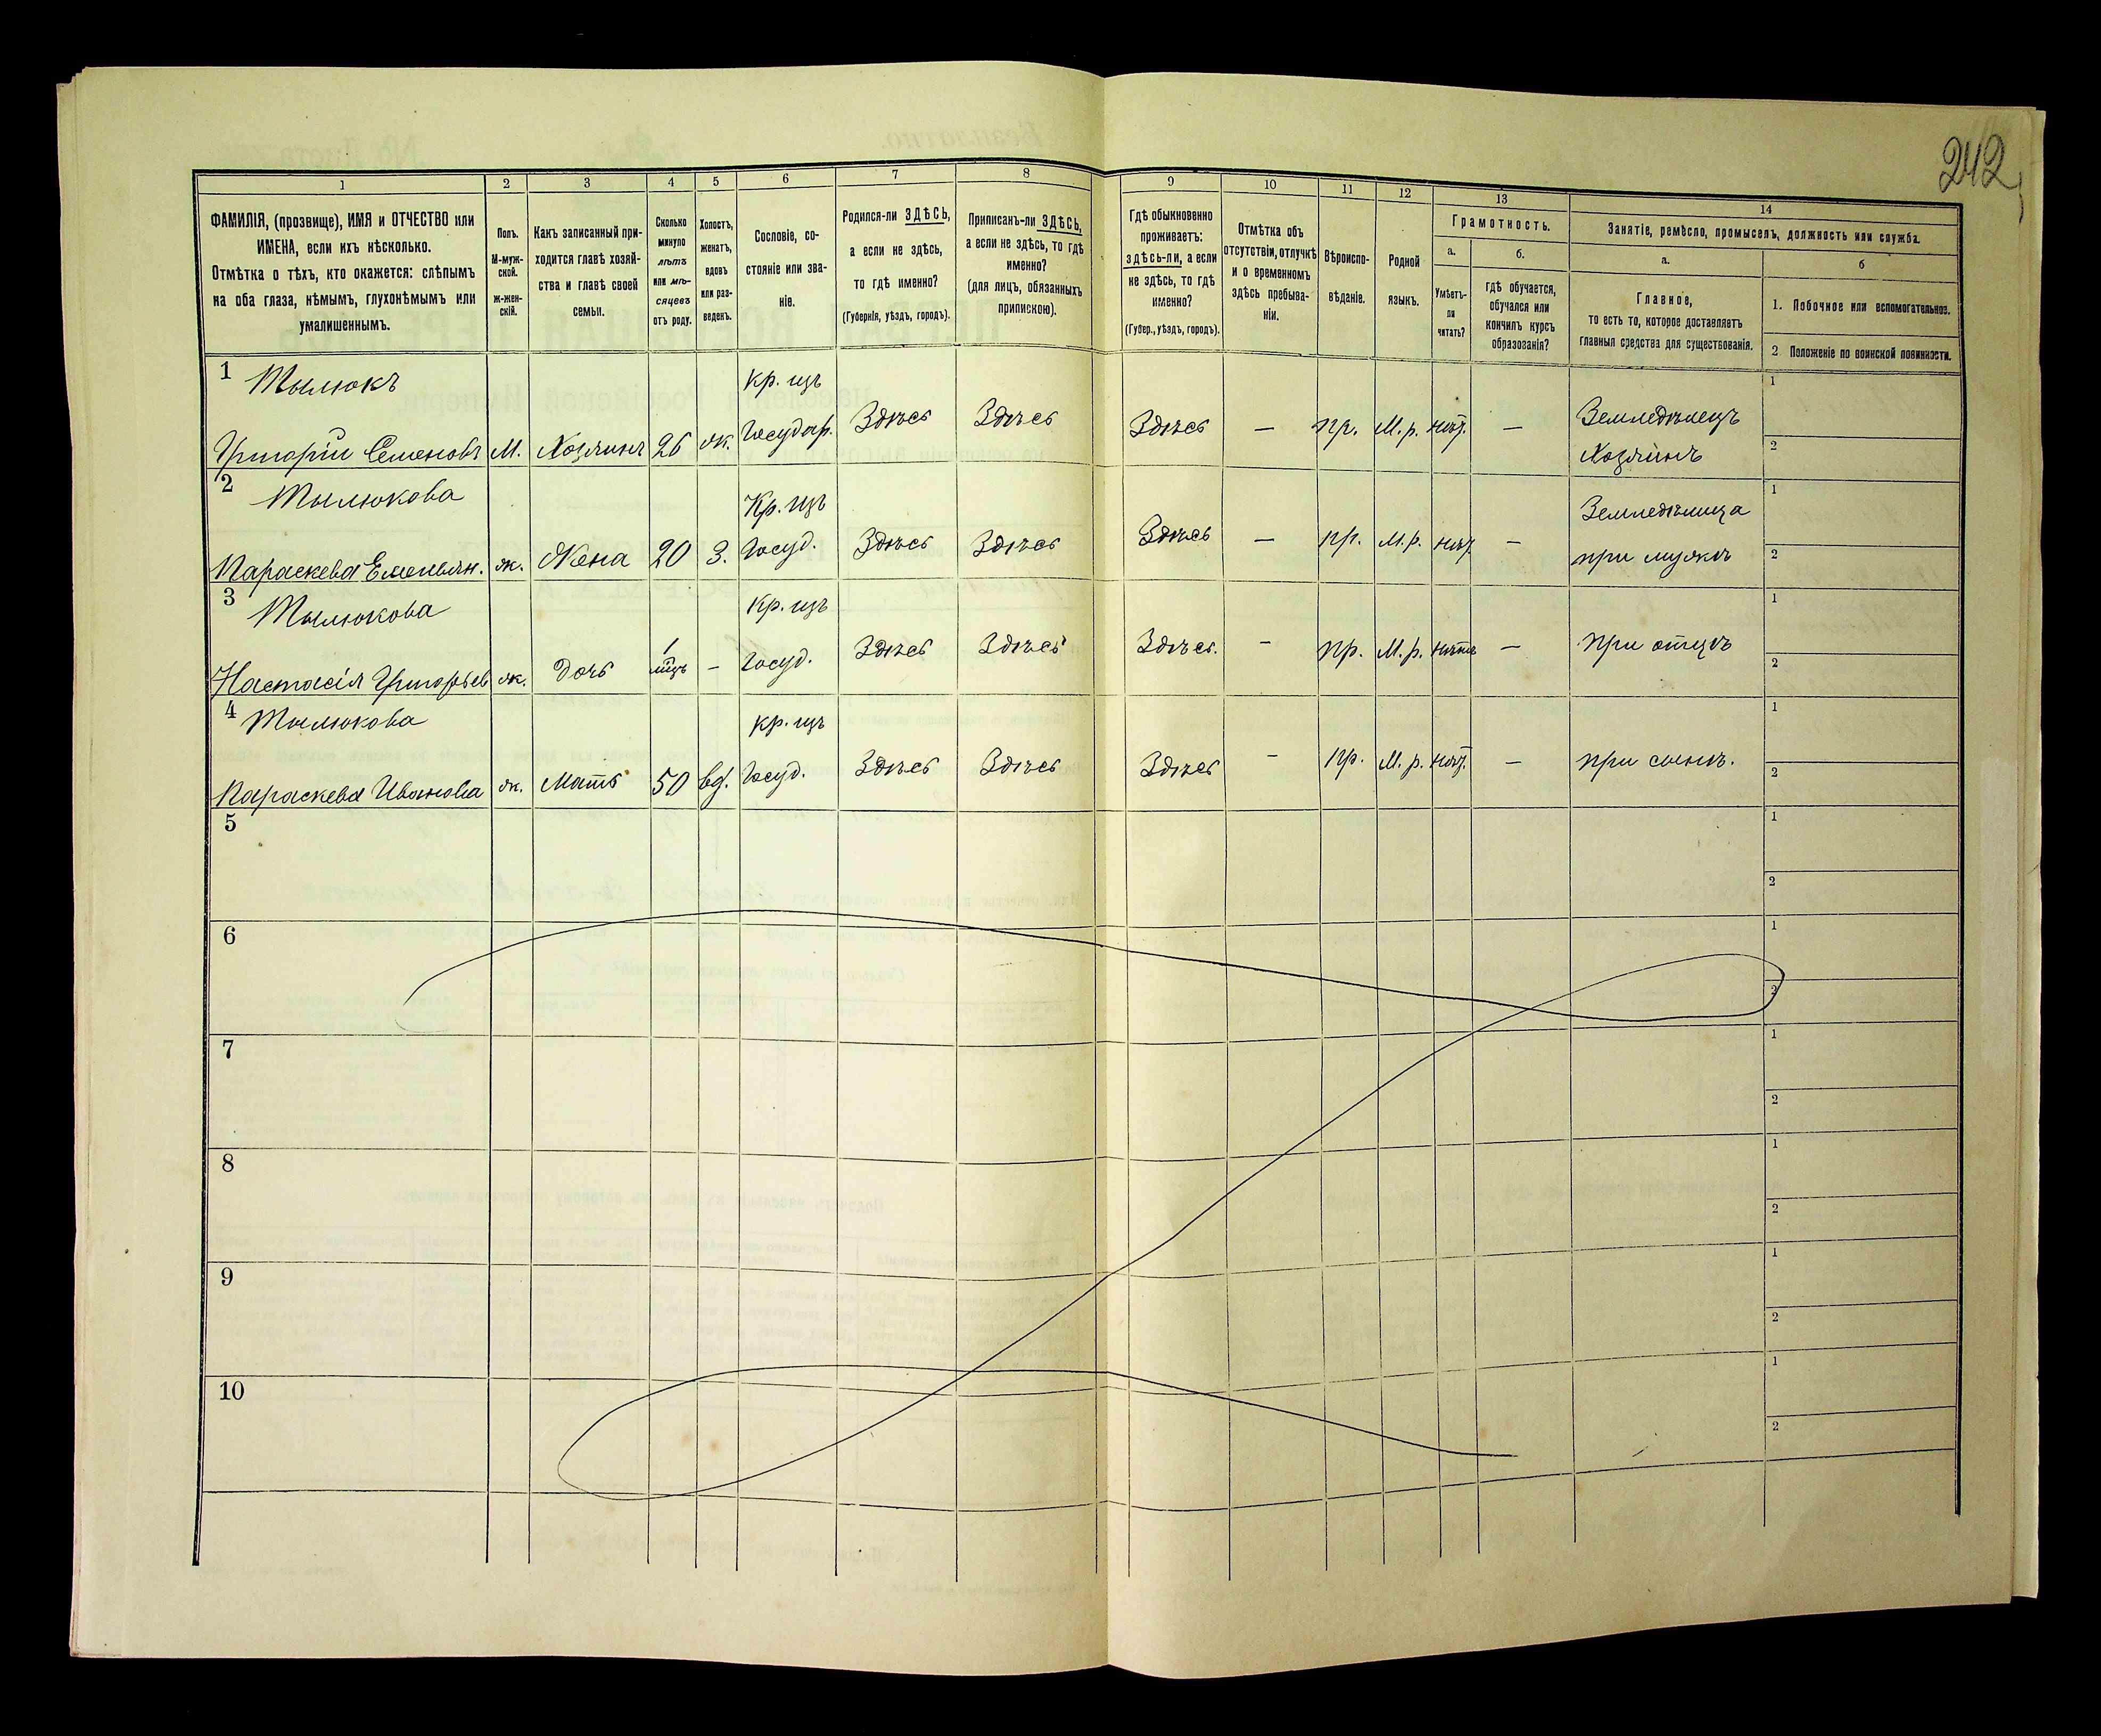 242
1
2
3
4
5
6
7
8
9
10
11
12
13
14
ФАМИЛІЯ, (прозвище), ИМЯ и ОТЧЕСТВО или
ИМЕНА, если ихъ нѣсколько.
Отмѣтка о тѣхъ, кто окажется: слѣпымъ
на оба глаза, нѣмымъ, глухонѣмымъ или
умалишеннымъ.
Полъ.
М-муж-
ской.
ж-жен-
скій.
Какъ записанный при-
ходится главѣ хозяй-
ства и главѣ своей
семьи.
Сколько
минуло
лѣтъ
или мѣ-
сяцевъ
отъ роду.
Холостъ,
женатъ,
вдовъ
или раз-
веденъ.
Сословіе, со-
стояніе или зва-
ніе.
Родился-ли ЗДѢСЬ,
а если не здѣсь,
то гдѣ именно?
(Губернія, уѣздъ, городъ).
Приписанъ-ли ЗДѢСЬ,
а если не здѣсь, то гдѣ
именно?
(для лицъ, обязанныхъ
припискою).
Гдѣ обыкновенно
проживаетъ:
здѣсь-ли, а если
не здѣсь, то гдѣ
именно?
(Губер., уѣздъ, городъ).
Отмѣтка объ
отсутствіи, отлучкѣ
и о временномъ
здѣсь пребыва-
ніи.
Вѣроиспо-
вѣданіе.
Родной
языкъ.
Грамотность.
а.
б.
Умѣетъ-
ли
читать?
гдѣ обучается,
обучался или
кончилъ курсъ
образованія?
Занятіе, ремесло, промыселъ, должность или служба.
а.
б
Главное,
то есть то, которое доставляетъ
главныя средства для существованія.
1. Побочное или вспомогательное.
2 Положеніе по воинской повинности.
1 Тылюкъ
Григорій Семеновъ М. Хозяинъ 26 ж. Кр. изъ Государ. Здѣсь Здѣсь Здѣсь — пр. М. р. нѣт. — Земледѣлецъ Хозяинъ 1 2
2 Тылюкова
Параскева Емельян. ж. Жена 20 З. Кр. изъ Госуд. Здѣсь Здѣсь Здѣсь — пр. М. р. нѣт — Земледѣлица при мужѣ 1 2
3 Тылюкова
Настасія Григорьев ж. Дочь 1 мцъ — Кр. изъ Госуд. Здѣсь Здѣсь Здѣсь. — пр. М. р. нѣтъ — при отцѣ 1 2
4 Тылюкова
Параскева Иванова ж. Мать 50 вд. Кр. изъ Госуд. Здѣсь Здѣсь Здѣсь — пр. М. р. нѣт. — при сынѣ. 1 2
5 1 2
6 1 2
7 1 2
8 1 2
9 1 2
10 1 2